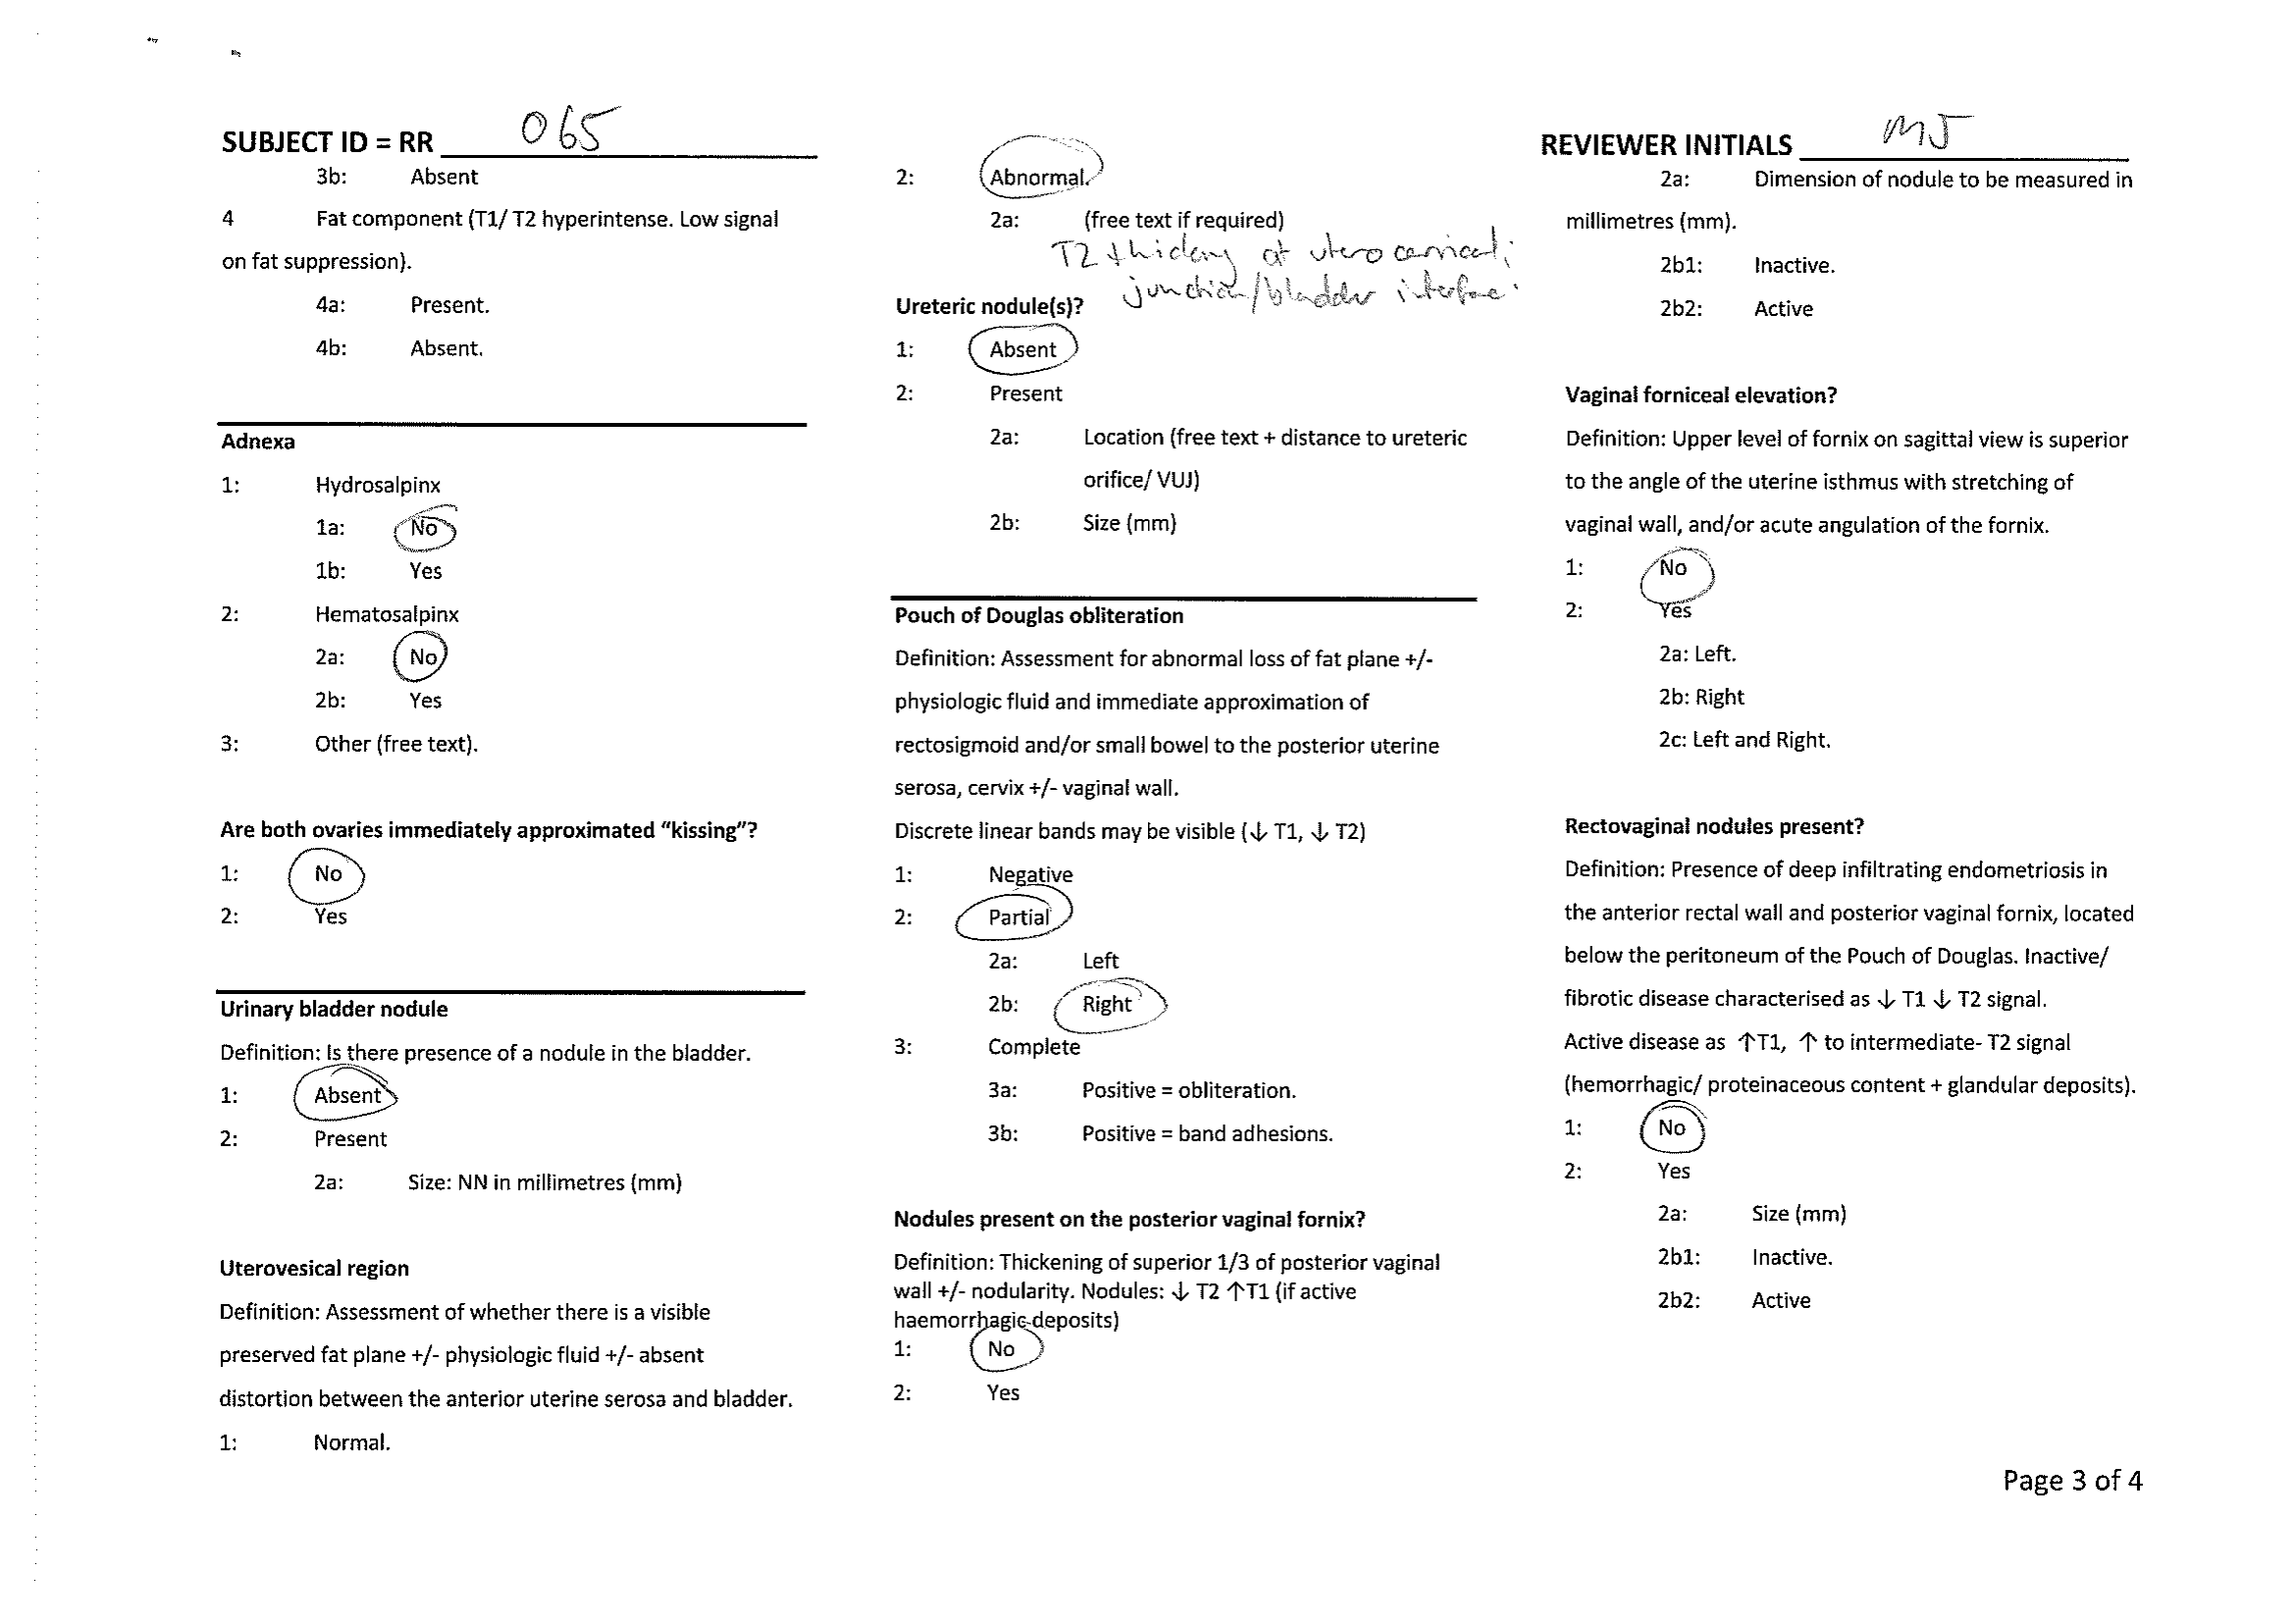 SUBJECT ID = RR 065
3b: Absent
4 Fat component (T1/ T2 hyperintense. Low signal
on fat suppression).
4a: Present.
4b: Absent.
Adnexa
1: Hydrosalpinx
1a: No
1b: Yes
2: Hematosalpinx
2a: No
2b: Yes
3: Other (free text).
Are both ovaries immediately approximated “kissing”?
1: No
2: Yes
Urinary bladder nodule
Definition: Is there presence of a nodule in the bladder.
1: Absent
2: Present
2a: Size: NN in millimetres (mm)
Uterovesical region
Definition: Assessment of whether there is a visible
preserved fat plane +/- physiologic fluid +/- absent
distortion between the anterior uterine serosa and bladder.
1: Normal.
2: Abnormal.
2a: (free text if required)
T2 at utero cervical
junction/bladder interface
Ureteric nodule(s)?
1: Absent
2: Present
2a: Location (free text + distance to ureteric
orifice/ VUJ)
2b: Size (mm)
Pouch of Douglas obliteration
Definition: Assessment for abnormal loss of fat plane +/-
physiologic fluid and immediate approximation of
rectosigmoid and/or small bowel to the posterior uterine
serosa, cervix +/- vaginal wall.
Discrete linear bands may be visible (↓ T1, ↓ T2)
1: Negative
2: Partial
2a: Left
2b: Right
3: Complete
3a: Positive = obliteration.
3b: Positive = band adhesions.
Nodules present on the posterior vaginal fornix?
Definition: Thickening of superior 1/3 of posterior vaginal
wall +/- nodularity. Nodules: ↓ T2 ↑T1 (if active
haemorrhagic deposits)
1: No
2: Yes
REVIEWER INITIALS MJ
2a: Dimension of nodule to be measured in
millimetres (mm).
2b1: Inactive.
2b2: Active
Vaginal forniceal elevation?
Definition: Upper level of fornix on sagittal view is superior
to the angle of the uterine isthmus with stretching of
vaginal wall, and/or acute angulation of the fornix.
1: No
2: Yes
2a: Left.
2b: Right
2c: Left and Right.
Rectovaginal nodules present?
Definition: Presence of deep infiltrating endometriosis in
the anterior rectal wall and posterior vaginal fornix, located
below the peritoneum of the Pouch of Douglas. Inactive/
fibrotic disease characterised as ↓ T1 ↓ T2 signal.
Active disease as ↑T1, ↑ to intermediate- T2 signal
(hemorrhagic/ proteinaceous content + glandular deposits).
1: No
2: Yes
2a: Size (mm)
2b1: Inactive.
2b2: Active
Page 3 of 4